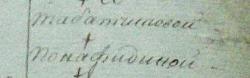 Табатчиковой
Понафидиной